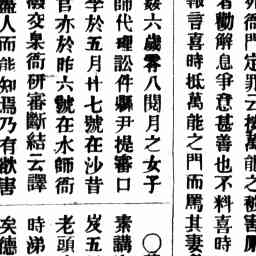 衙門定罪云按萬能之被害
者勸解息爭意甚善也不料喜時
報言喜時抵萬能之門而罵其妻
姦六歲零八閱月之女子
師代理訟件縣尹提審口
李於五月廿七號在沙昔
官亦於昨六號在水師衙
交臬衙研審斷結云譯
人而能知焉乃有欲害
〇
素講
歲五
老頭
時涕
矣德